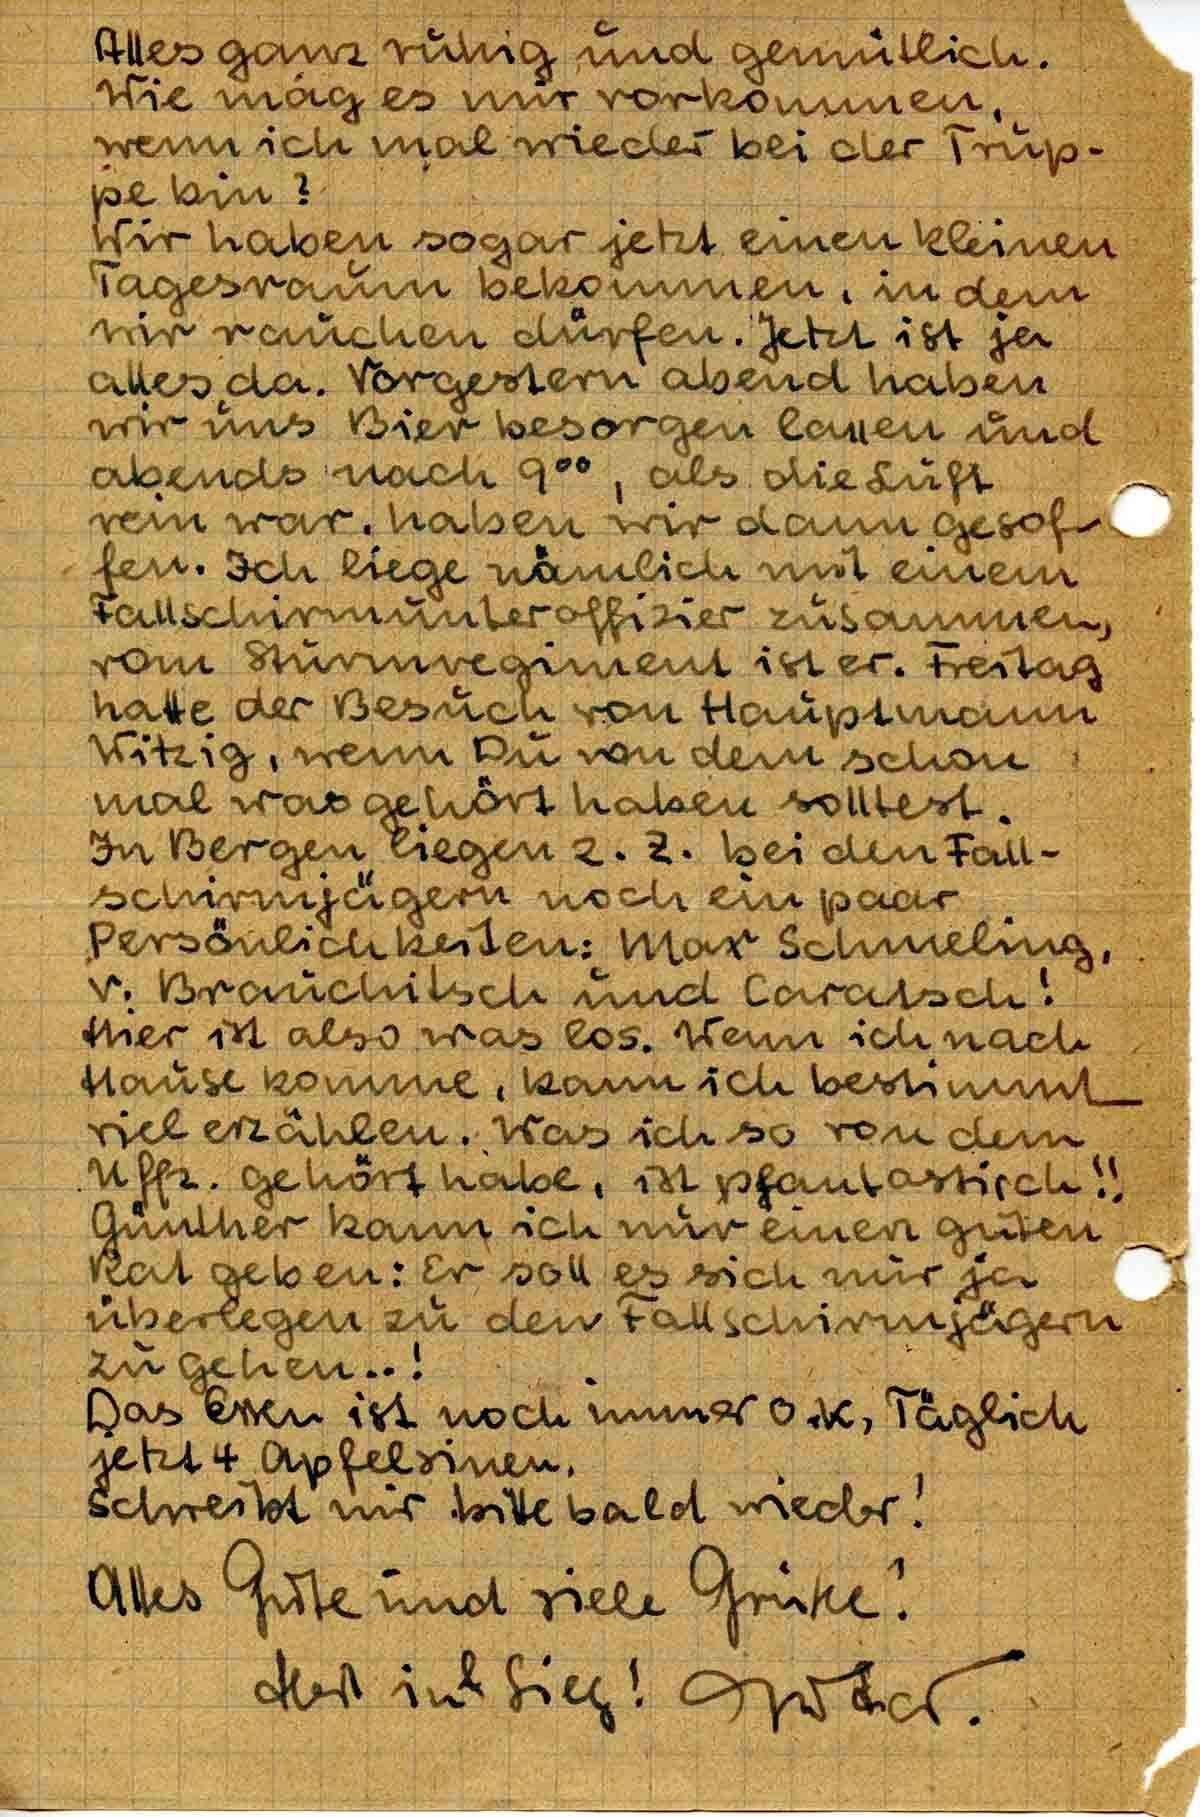 Alles ganz ruhig und gemütlich.
Wie mag es mir vorkommen,
wenn ich mal wieder bei der Trup-
pe bin?
Wir haben sogar jetzt einen kleinen
Tagesraum bekommen, in dem
wir rauchen dürfen. Jetzt ist ja
alles da. Vorgestern abend haben
wir uns Bier besorgen lassen und
abends nach 9⁰⁰, als die Luft
rein war, haben wir dann gesof-
fen. Ich liege nämlich mit einem
Fallschirmunteroffizier zusammen,
vom Sturmregiment ist er. Freitag
hatte der Besuch von Hauptmann
Witzig, wenn Du von dem schon
mal was gehört haben solltest.
In Bergen liegen z. Z. bei den Fall-
schirmjägern noch ein paar
Persönlichkeiten: Max Schmeling,
v. Brauchitsch und Caratsch!
Hier ist also was los. Wenn ich nach
Hause komme, kann ich bestimmt
viel erzählen. Was ich so von dem
Uffz. gehört habe, ist phantastisch!!
Günther kann ich nur einen guten
Rat geben: Er soll es sich nur ja
überlegen zu den Fallschirmjägern
zu gehen..!
Das Essen ist noch immer o.k, Täglich
jetzt 4 Apfelsinen.
Schreibt mir bitte bald wieder!
Alles Gute und viele Grüße!
Heil und Sieg!